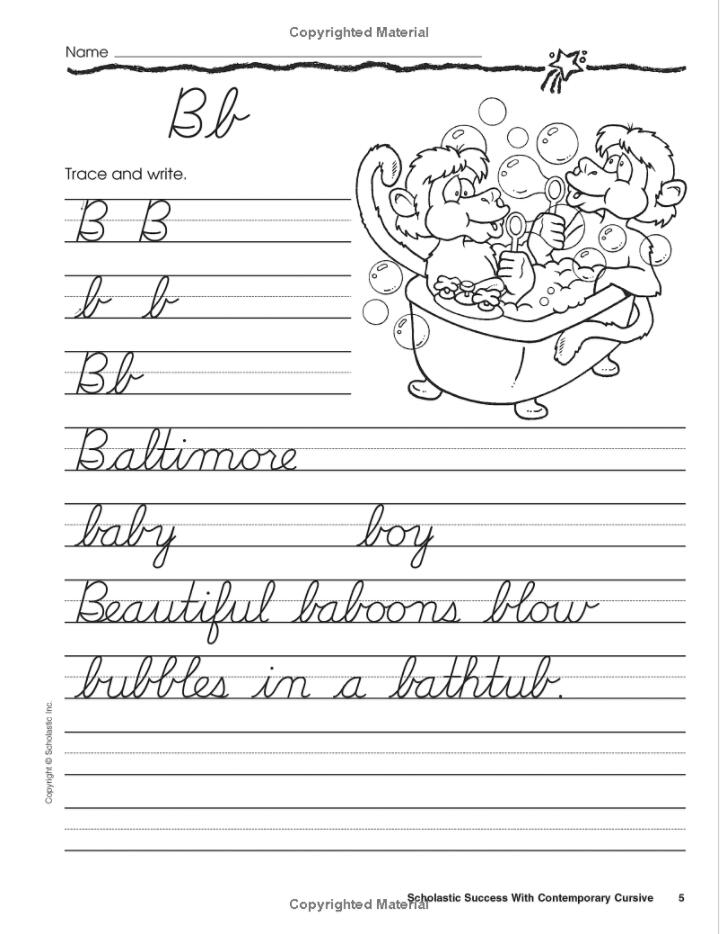 Copyrighted Material
Name
Bb
Trace and write.
B B
b b
Bb
Baltimore
baby boy
Beautiful baboons blow
bubbles in a bathtub.
Copyright © Scholastic Inc.
Scholastic Success With Contemporary Cursive 5
Copyrighted Material